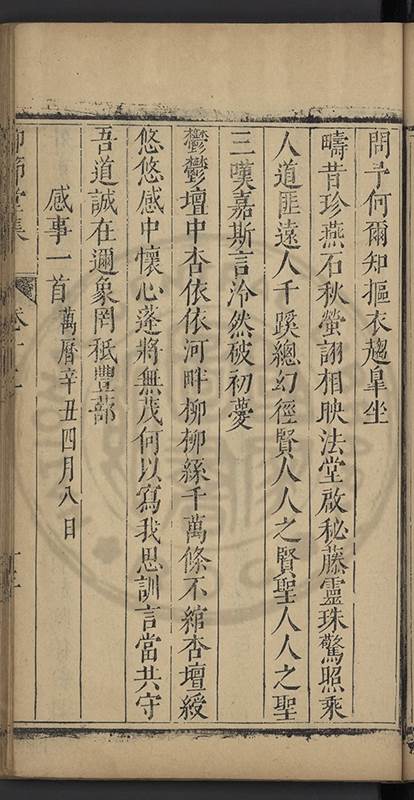 問予何爾知摳衣趨臯坐
疇昔珍燕石秋螢詡相映法堂啟秘藤靈珠驚照乘
人道匪遠人千蹊總幻徑賢人人之賢聖人人之聖
三嘆嘉斯言泠然破初憂
鬱鬱壇中杏依依河畔柳柳絲千萬條不綰杏壇綬
悠悠感中懷心蓬將無茂何以寫我思訓言當共守
吾道誠在邇象罔秖豐蔀
感事一首萬曆辛丑四月八日
節堂集 卷十